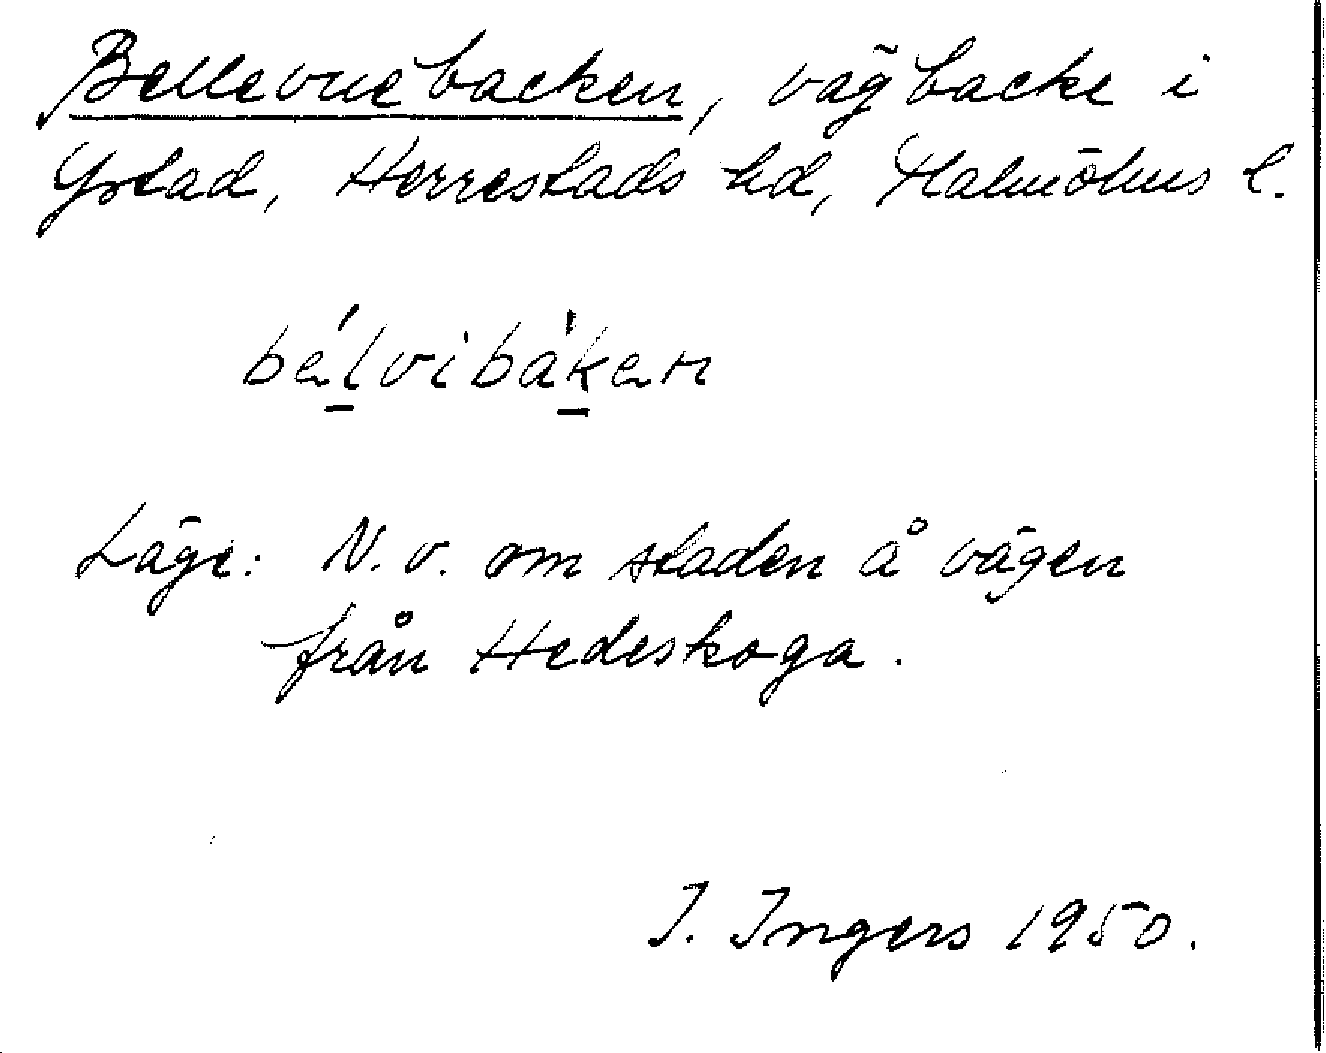 Bellevuebacken, vägbacke i
Ystad, Herrestads hd, Malmöhus l.
bél̲vibàk̲en
Läge: N.v. om staden å vägen
från Hedeskoga.
I. Ingers 1950.